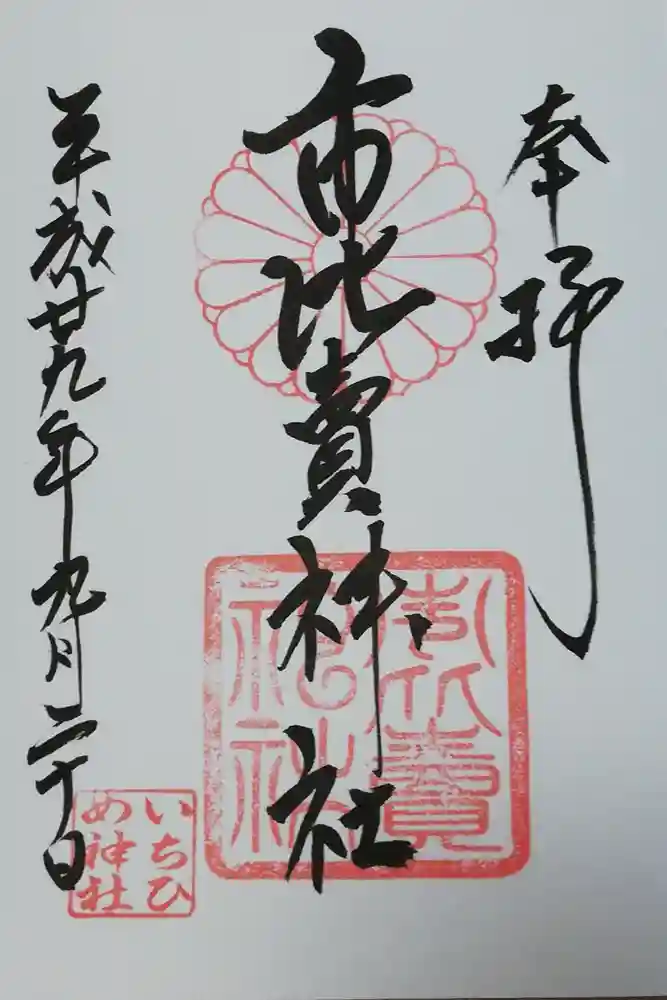 奉拝
市比賣神社
平成廿九年九月二十日
市比賣
神社
いちひ
め神社